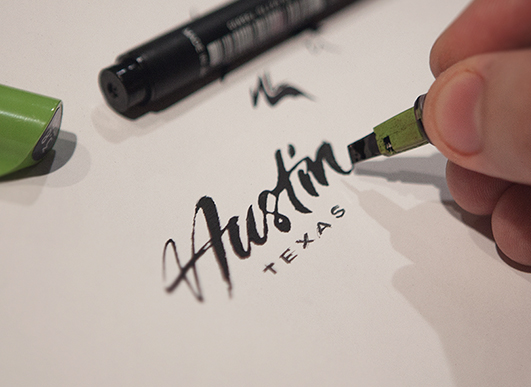 Austin
TEXAS